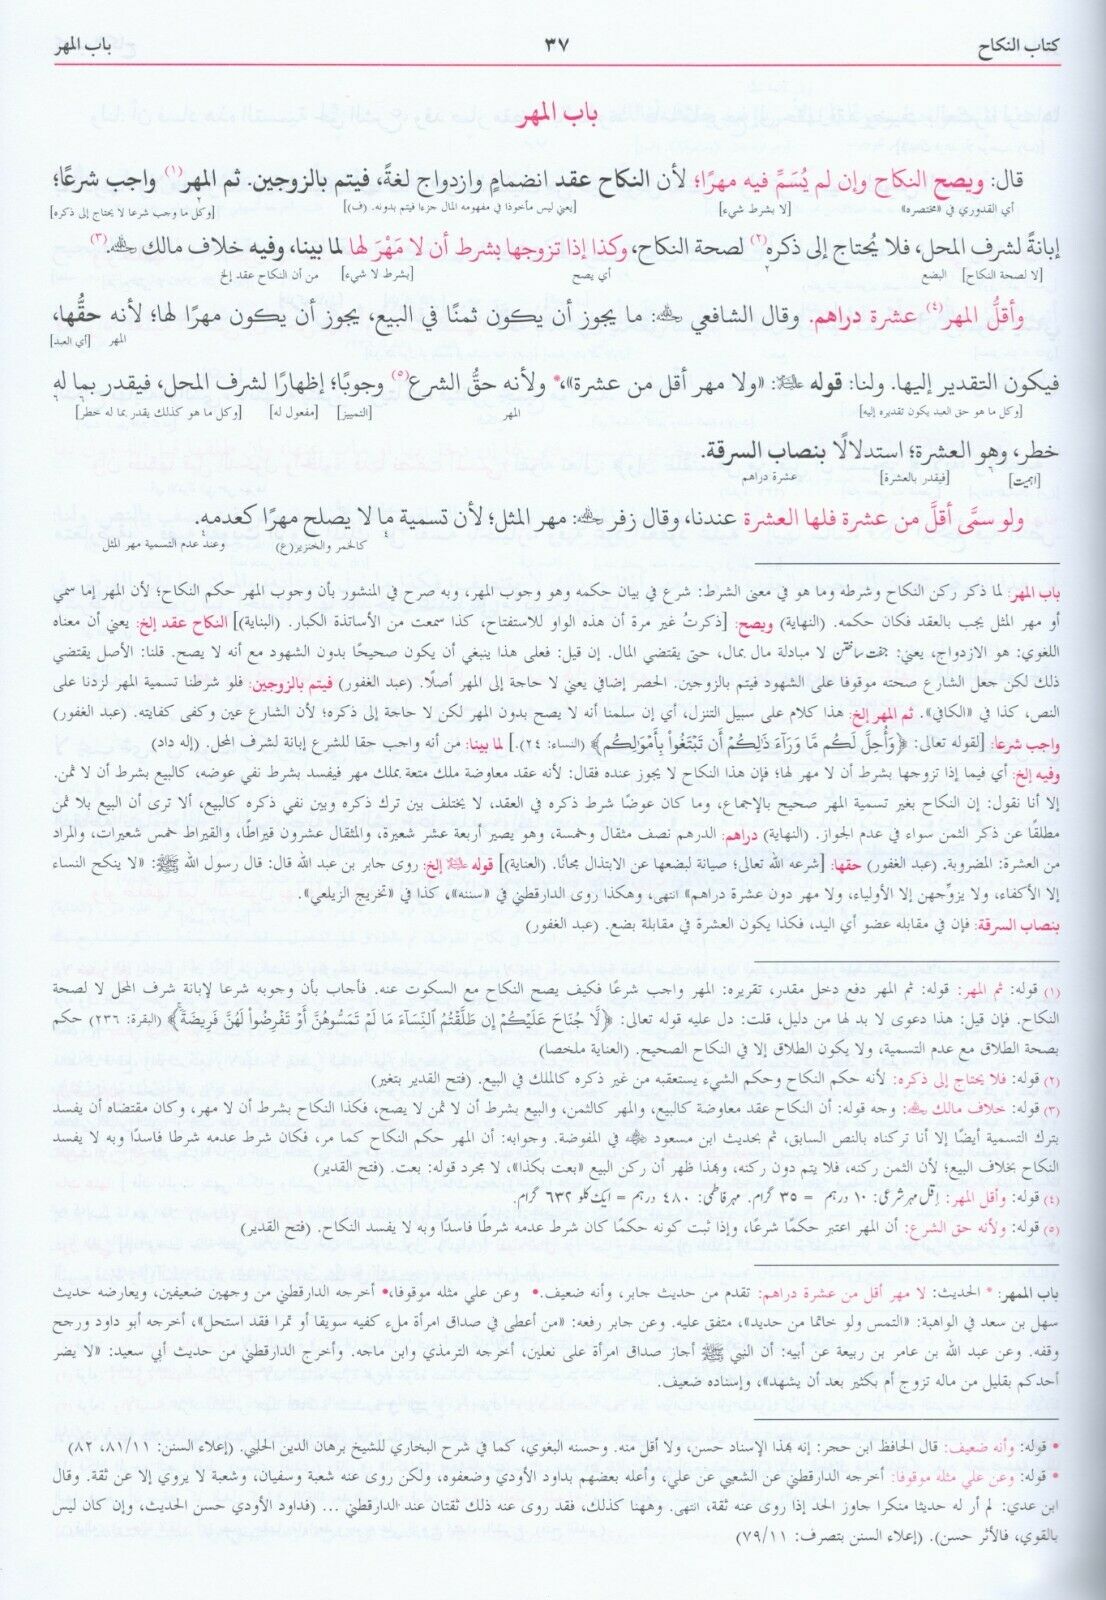 كتاب النكاح ٣٧ باب المهر
باب المهر
قال: ويصح النكاح وإن لم يُسَمِّ فيه مهرًا؛ لأن النكاح عقد انضمامٍ وازدواجٍ لغةً، فيتم بالزوجين. ثم المهر(١) واجب شرعًا؛
أي القدوري في «مختصره» [لا بشرط شيء] [يعني ليس مأخوذا في مفهومه المال جزءا فيتم بدونه. (ف)] [وكل ما وجب شرعا لا يحتاج إلى ذكره]
إبانةً لشرف المحل، فلا يُحتاج إلى ذكره(٢) لصحة النكاح، وكذا إذا تزوجها بشرط أن لا مَهْرَ لها لما بينا، وفيه خلاف مالك رحمه الله.(٣)
[لا لصحة النكاح] البضع أي يصح [بشرط لا شيء] من أن النكاح عقد إلخ
وأقلُّ المهر(٤) عشرة دراهم. وقال الشافعي رحمه الله: ما يجوز أن يكون ثمنًا في البيع، يجوز أن يكون مهرًا لها؛ لأنه حقُّها،
المهر [أي العبد]
فيكون التقدير إليها. ولنا: قوله عليه السلام: «ولا مهر أقل من عشرة»،* ولأنه حقُّ الشرع(٥) وجوبًا؛ إظهارًا لشرف المحل، فيقدر بما له
[وكل ما هو حق العبد يكون تقديره إليه] المهر [التمييز] [مفعول له] [وكل ما هو كذلك يقدر بما له خطر]
خطر، وهو العشرة؛ استدلالًا بنصاب السرقة.
[اہمیت] [فيقدر بالعشرة] عشرة دراهم
ولو سمَّى أقلَّ من عشرة فلها العشرة عندنا، وقال زفر رحمه الله: مهر المثل؛ لأن تسمية ما لا يصلح مهرًا كعدمه.
كالخمر والخنزير(ع) وعند عدم التسمية مهر المثل
باب المهر: لما ذكر ركن النكاح وشرطه وما هو في معنى الشرط: شرع في بيان حكمه وهو وجوب المهر، وبه صرح في المنشور بأن وجوب المهر حكم النكاح؛ لأن المهر إما سمي
أو مهر المثل يجب بالعقد فكان حكمه. (النهاية) ويصح: [ذكرتُ غير مرة أن هذه الواو للاستفتاح، كذا سمعت من الأساتذة الكبار. (البناية)] النكاح عقد إلخ: يعني أن معناه
اللغوي: هو الازدواج، يعني: جفت ساختن لا مبادلة مال بمال، حتى يقتضي المال. إن قيل: فعلى هذا ينبغي أن يكون صحيحًا بدون الشهود مع أنه لا يصح. قلنا: الأصل يقتضي
ذلك لكن جعل الشارع صحته موقوفا على الشهود فيتم بالزوجين. الحصر إضافي يعني لا حاجة إلى المهر أصلًا. (عبد الغفور) فيتم بالزوجين: فلو شرطنا تسمية المهر لزدنا على
النص، كذا في «الكافي». ثم المهر إلخ: هذا كلام على سبيل التنزل، أي إن سلمنا أنه لا يصح بدون المهر لكن لا حاجة إلى ذكره؛ لأن الشارع عين وكفى كفايته. (عبد الغفور)
واجب شرعا: [لقوله تعالى: ﴿وَأُحِلَّ لَكُم مَّا وَرَآءَ ذَٰلِكُمْ أَن تَبْتَغُواْ بِأَمْوَٰلِكُم﴾ (النساء: ٢٤).] لما بينا: من أنه واجب حقا للشرع إبانة لشرف المحل. (إله داد)
وفيه إلخ: أي فيما إذا تزوجها بشرط أن لا مهر لها؛ فإن هذا النكاح لا يجوز عنده فقال: لأنه عقد معاوضة ملك متعة بملك مهر فيفسد بشرط نفي عوضه، كالبيع بشرط أن لا ثمن.
إلا أنا نقول: إن النكاح بغير تسمية المهر صحيح بالإجماع، وما كان عوضًا شرط ذكره في العقد، لا يختلف بين ترك ذكره وبين نفي ذكره كالبيع، ألا ترى أن البيع بلا ثمن
مطلقًا عن ذكر الثمن سواء في عدم الجواز. (النهاية) دراهم: الدرهم نصف مثقال وخمسة، وهو يصير أربعة عشر شعيرة، والمثقال عشرون قيراطًا، والقيراط خمس شعيرات، والمراد
من العشرة: المضروبة. (عبد الغفور) حقها: [شرعه الله تعالى؛ صيانة لبضعها عن الابتذال مجانًا. (العناية)] قوله عليه السلام إلخ: روى جابر بن عبد الله قال: قال رسول الله ﷺ: «لا ينكح النساء
إلا الأكفاء، ولا يزوِّجهن إلا الأولياء، ولا مهر دون عشرة دراهم» انتهى، وهكذا روى الدارقطني في «سننه»، كذا في «تخريج الزيلعي».
بنصاب السرقة: فإن في مقابله عضو أي اليد، فكذا يكون العشرة في مقابلة بضع. (عبد الغفور)
(١) قوله: ثم المهر: قوله: ثم المهر دفع دخل مقدر، تقريره: المهر واجب شرعًا فكيف يصح النكاح مع السكوت عنه. فأجاب بأن وجوبه شرعا لإبانة شرف المحل لا لصحة
النكاح. فإن قيل: هذا دعوى لا بد لها من دليل، قلت: دل عليه قوله تعالى: ﴿لَّا جُنَاحَ عَلَيْكُمْ إِن طَلَّقْتُمُ ٱلنِّسَآءَ مَا لَمْ تَمَسُّوهُنَّ أَوْ تَفْرِضُواْ لَهُنَّ فَرِيضَةً﴾ (البقرة: ٢٣٦) حكم
بصحة الطلاق مع عدم التسمية، ولا يكون الطلاق إلا في النكاح الصحيح. (العناية ملخصا)
(٢) قوله: فلا يحتاج إلى ذكره: لأنه حكم النكاح وحكم الشيء يستعقبه من غير ذكره كالملك في البيع. (فتح القدير بتغير)
(٣) قوله: خلاف مالك رحمه الله: وجه قوله: أن النكاح عقد معاوضة كالبيع، والمهر كالثمن، والبيع بشرط أن لا ثمن لا يصح، فكذا النكاح بشرط أن لا مهر، وكان مقتضاه أن يفسد
بترك التسمية أيضًا إلا أنا تركناه بالنص السابق، ثم بحديث ابن مسعود رضي الله عنه في المفوضة. وجوابه: أن المهر حكم النكاح كما مر، فكان شرط عدمه شرطا فاسدًا وبه لا يفسد
النكاح بخلاف البيع؛ لأن الثمن ركنه، فلا يتم دون ركنه، وبهذا ظهر أن ركن البيع «بعت بكذا»، لا مجرد قوله: بعت. (فتح القدير)
(٤) قوله: وأقل المهر: اقل مہر شرعی: ١٠ درہم = ٣٥ گرام. مہر فاطمی: ٤٨٠ درہم = ایک کلو ٦٣٢ گرام.
(٥) قوله: ولأنه حق الشرع: أن المهر اعتبر حكمًا شرعًا، وإذا ثبت كونه حكمًا كان شرط عدمه شرطًا فاسدًا وبه لا يفسد النكاح. (فتح القدير)
باب الممهر: * الحديث: لا مهر أقل من عشرة دراهم: تقدم من حديث جابر، وأنه ضعيف.• وعن علي مثله موقوفا،• أخرجه الدارقطني من وجهين ضعيفين، ويعارضه حديث
سهل بن سعد في الواهبة: «التمس ولو خاتما من حديد»، متفق عليه. وعن جابر رفعه: «من أعطى في صداق امرأة ملء كفيه سويقا أو تمرا فقد استحل»، أخرجه أبو داود ورجح
وقفه. وعن عبد الله بن عامر بن ربيعة عن أبيه: أن النبي ﷺ أجاز صداق امرأة على نعلين، أخرجه الترمذي وابن ماجه. وأخرج الدارقطني من حديث أبي سعيد: «لا يضر
أحدكم بقليل من ماله تزوج أم بكثير بعد أن يشهد»، وإسناده ضعيف.
• قوله: وأنه ضعيف: قال الحافظ ابن حجر: إنه بهذا الإسناد حسن، ولا أقل منه. وحسنه البغوي، كما في شرح البخاري للشيخ برهان الدين الحلبي. (إعلاء السنن: ٨١/١١، ٨٢)
• قوله: وعن علي مثله موقوفا: أخرجه الدارقطني عن الشعبي عن علي، وأعله بعضهم بداود الأودي وضعفوه، ولكن روى عنه شعبة وسفيان، وشعبة لا يروي إلا عن ثقة. وقال
ابن عدي: لم أر له حديثا منكرا جاوز الحد إذا روى عنه ثقة، انتهى. وههنا كذلك، فقد روى عنه ذلك ثقتان عند الدارقطني ... (فداود الأودي حسن الحديث، وإن كان ليس
بالقوي، فالأثر حسن). (إعلاء السنن بتصرف: ٧٩/١١)